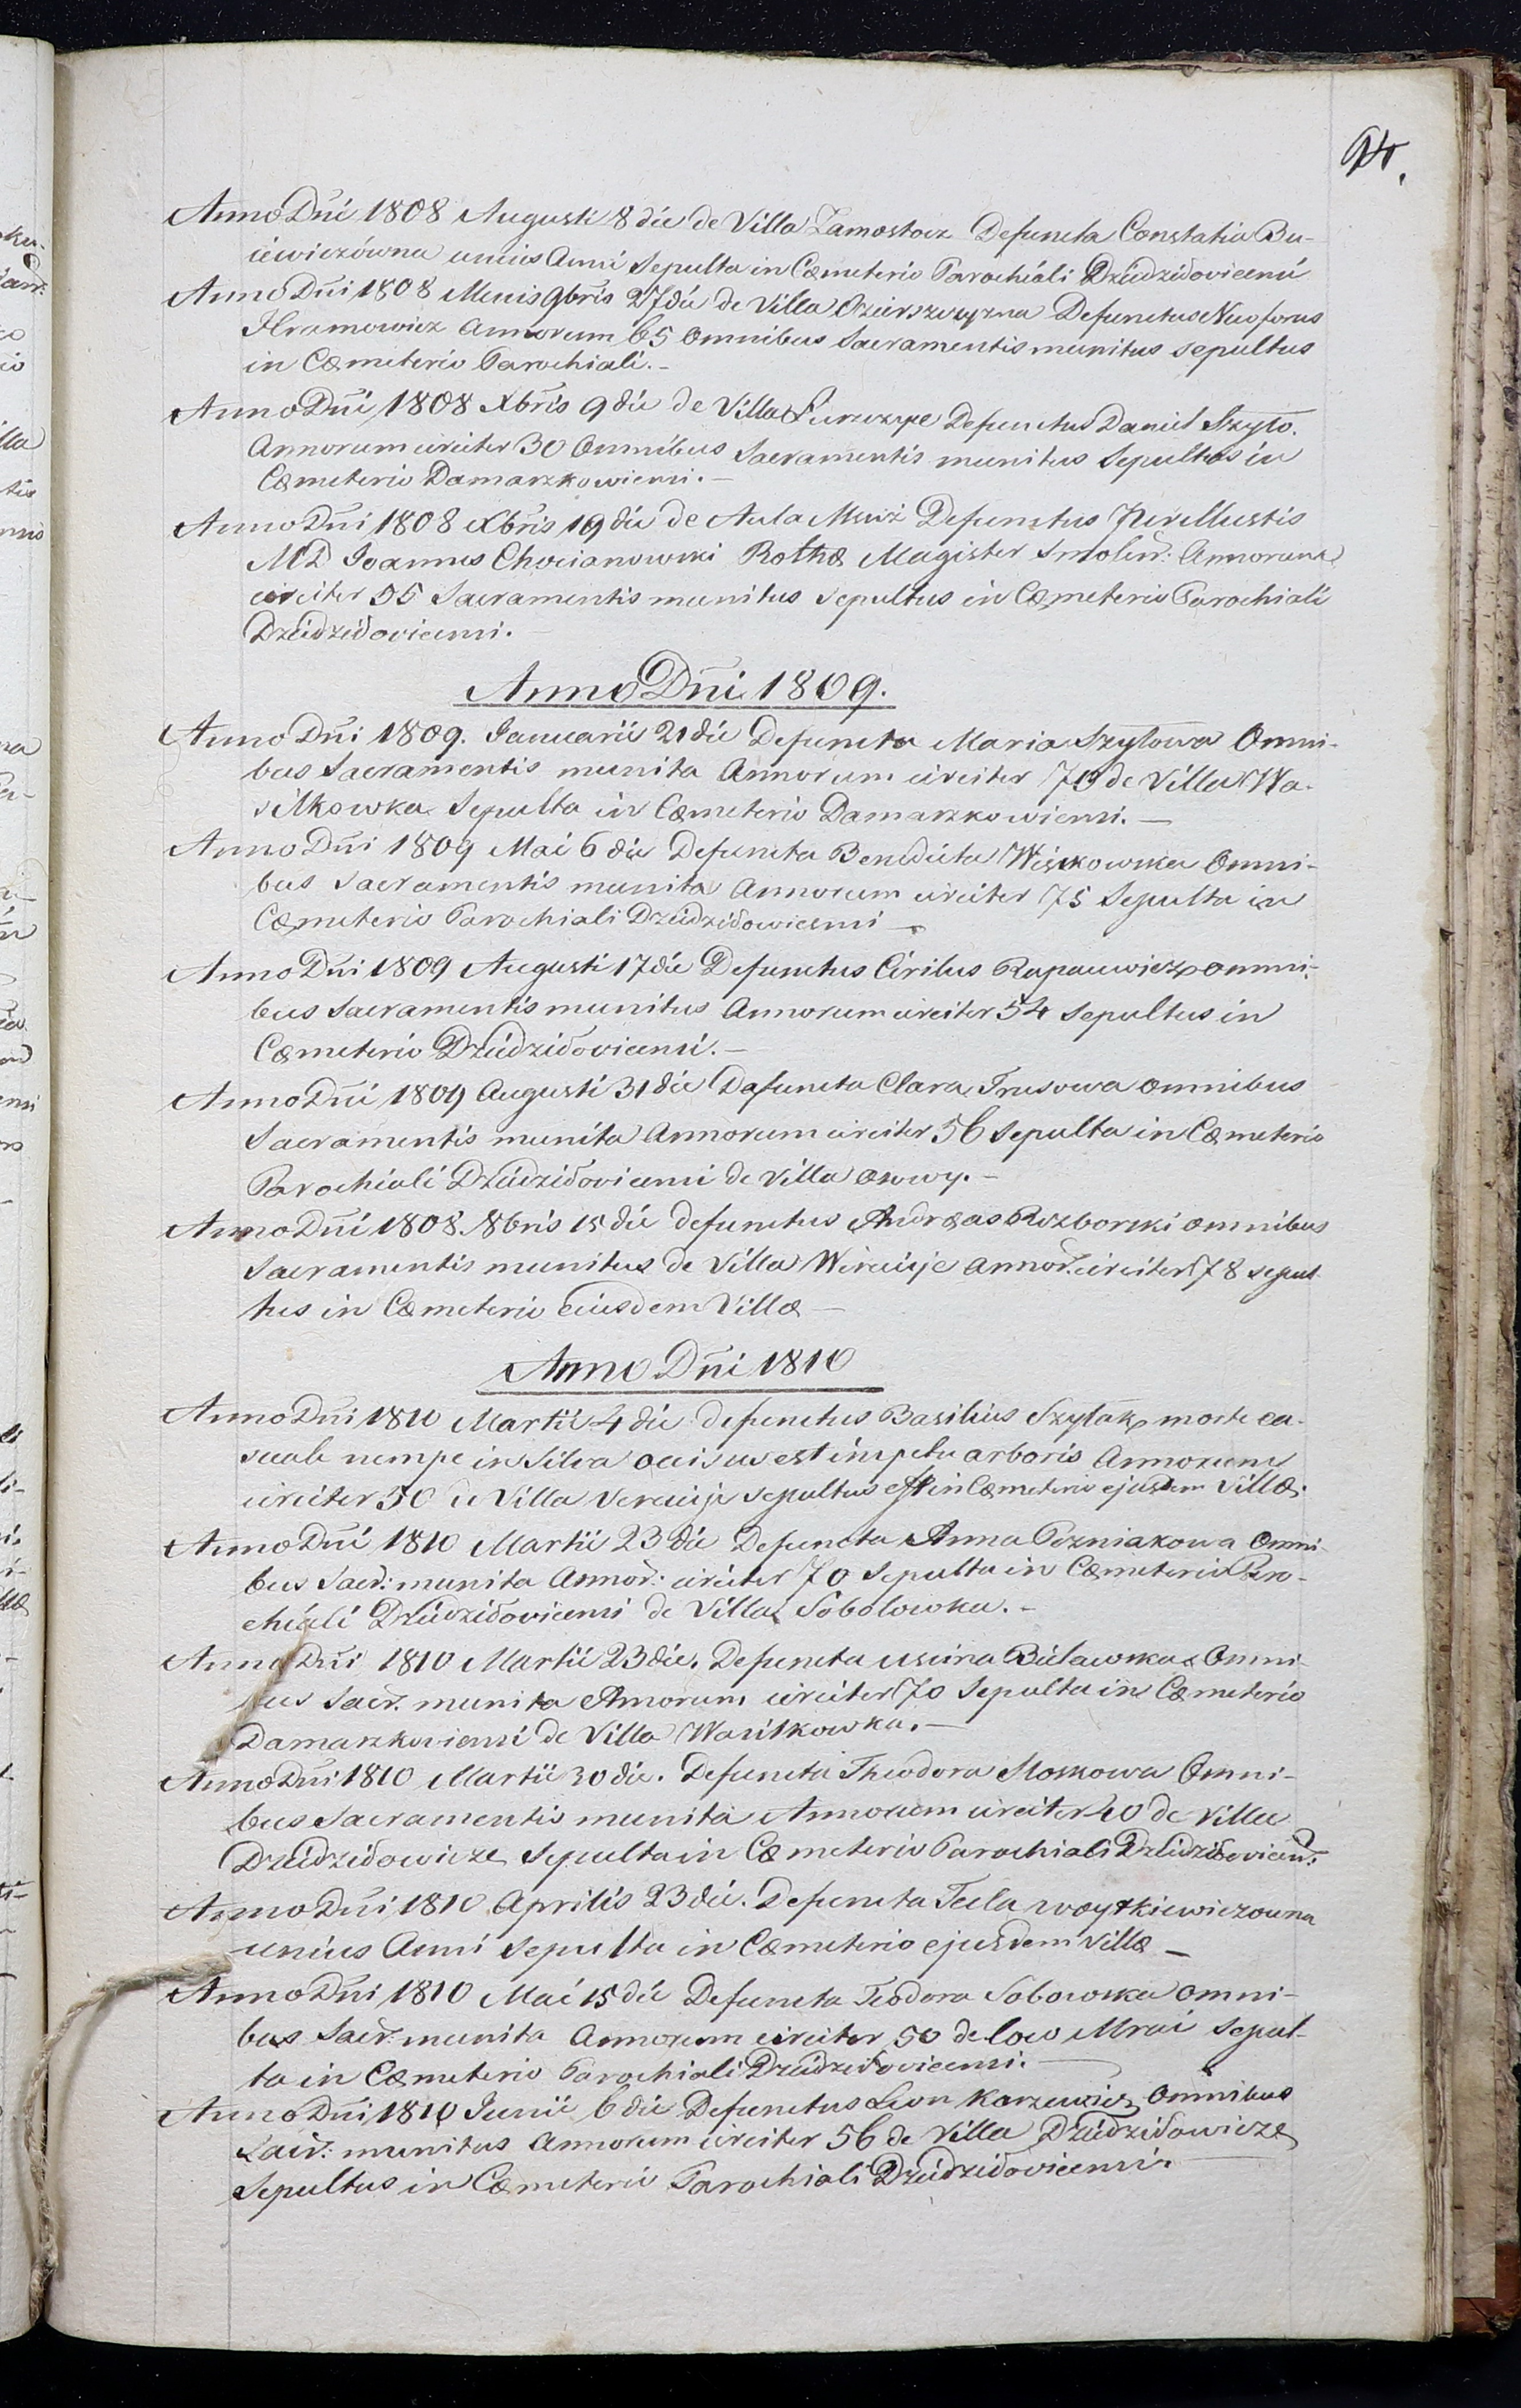 94.
Anno Dñi 1808 Augusti 8 die de Villa Zamostocz Defuncta Constatia Bu-
iewiczówna unius Anni Sepulta in Cœmeterio Parochiali Dziedziłovicensi
Anno Dñi 1808 Mensis 9bris 27 die de Villa Defunctus Niceforus
Hramowicz Annorum 65 Omnibus Sacramentis munitus sepultus
in Cœmeterio Parochiali.-
Anno Dñi 1808 Xbris 9 die de Villa Defunctus Daniel Szyło.
Annorum circiter 30 Omnibus Sacramentis munitus Sepultus in
Cœmeterio Damarzkowiensi.-
Anno Dñi 1808 Xbris 19 die de Aula Mrai Defunctus Perillustis
MD Joannes Chocianowski Rothæ Magister Smoleñ: Annorum
circiter 55 Sacramentis munitus sepultus in Cœmeterio Parochiali
Dziedziłovicensi.-
Anno Dñi 1809.
Anno Dñi 1809. Januarii 21 die Defuncta Maria Szyłowa Omni-
bus Sacramentis munita Annorum circiter 70 de Villa Wa-
silkowka Sepulta in Cœmeterio Damarzkowiensi.-
Anno Dñi 1809 Mai 6 die Defuncta Benedicta Omni-
bus Sacramentis munita Annorum circiter 75 Sepulta in
Cœmeterio Parochiali Dziedziłowicensi -
Anno Dñi 1809 Augusti 17 die Defunctus Cirilus Rapacewicz omni-
bus Sacramentis munitus Annorum circiter 54 Sepultus in
Cœmeterio Dziedziłovicensi.-
Anno Dñi 1809 Augusti 31 die Dafuncta Clara Trusowa omnibus
Sacramentis munita Annorum circiter 56 Sepulta in Cœmeterio
Parochiali Dziedziłovicensi de Villa Osowy.-
Anno Dñi 1808. 8bris 15 die defunctus Andreas Rozborski omnibus
Sacramentis munitus de Villa Wereiije annoř. circiter 78 sepul
tus in Cœmeterio Eiusdem Villæ -
Anno Dñi 1810
Anno Dñi 1810 Martii 4 die defunctus Basilius Szyłak morte ca-
suale nempe in Silva occisus est impetu arboris Annorum
circiter 50 de Villa Vereiije sepultus est in Cœmeterio ejusdem Villæ.
Anno Dñi 1810 Martii 23 die Defuncta Anna Pozniakowa Omni-
bus Sacř: munita Annoř: circiter 70 Sepulta in Cœmeterio Paro-
chiali Dziedziłovicensi de Villa Sobolowka.-
Anno Dñi 1810 Martii 23 die. Defuncta Bielawska Omni-
bus Sacř. munita Annorum circiter 70 Sepulta in Cœmeterio
Damarzkoviensi de Villa Wasilkowka.-
Anno Dñi 1810 Martii 30 die. Defuncta Theodora Moskowa Omni-
bus Sacramentis munita Annorum circiter 40 de Villa
Dziedziłowicze Sepulta in Cœmeterio Parochiali Dziedziłovicen:
Anno Dñi 1810 Aprilis 23 die. Defuncta Tecla woytkiewiczowna
unius Anni Sepulta in Cœmeterio ejusdem Villæ -
Anno Dñi 1810 Mai 15 die Defuncta Teodora Sobowska omni-
bus Sacř: munita Annorum circiter 50 de loco Mrai Sepul-
ta in Cœmeterio Parochiali Dziedziłovicensi.-
Anno Dñi 1810 Junii 6 die Defunctus Leon Karzewicz Omnibus
Sacř: munitus Annorum circiter 56 de Villa Dziedziłowicze
Sepultus in Cœmeterio Parochiali Dziedziłovicensi.-